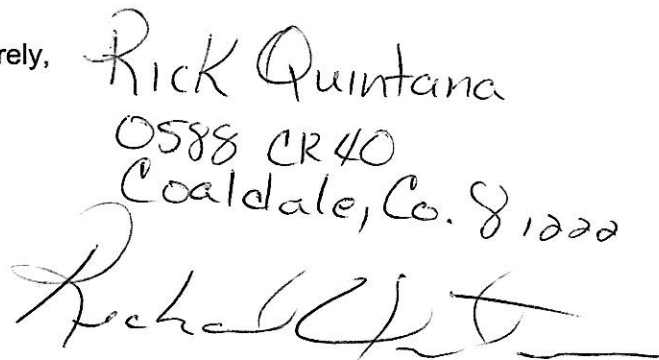 rely,
Rick Quintana
0588 CR 40
Coaldale, Co. 81222